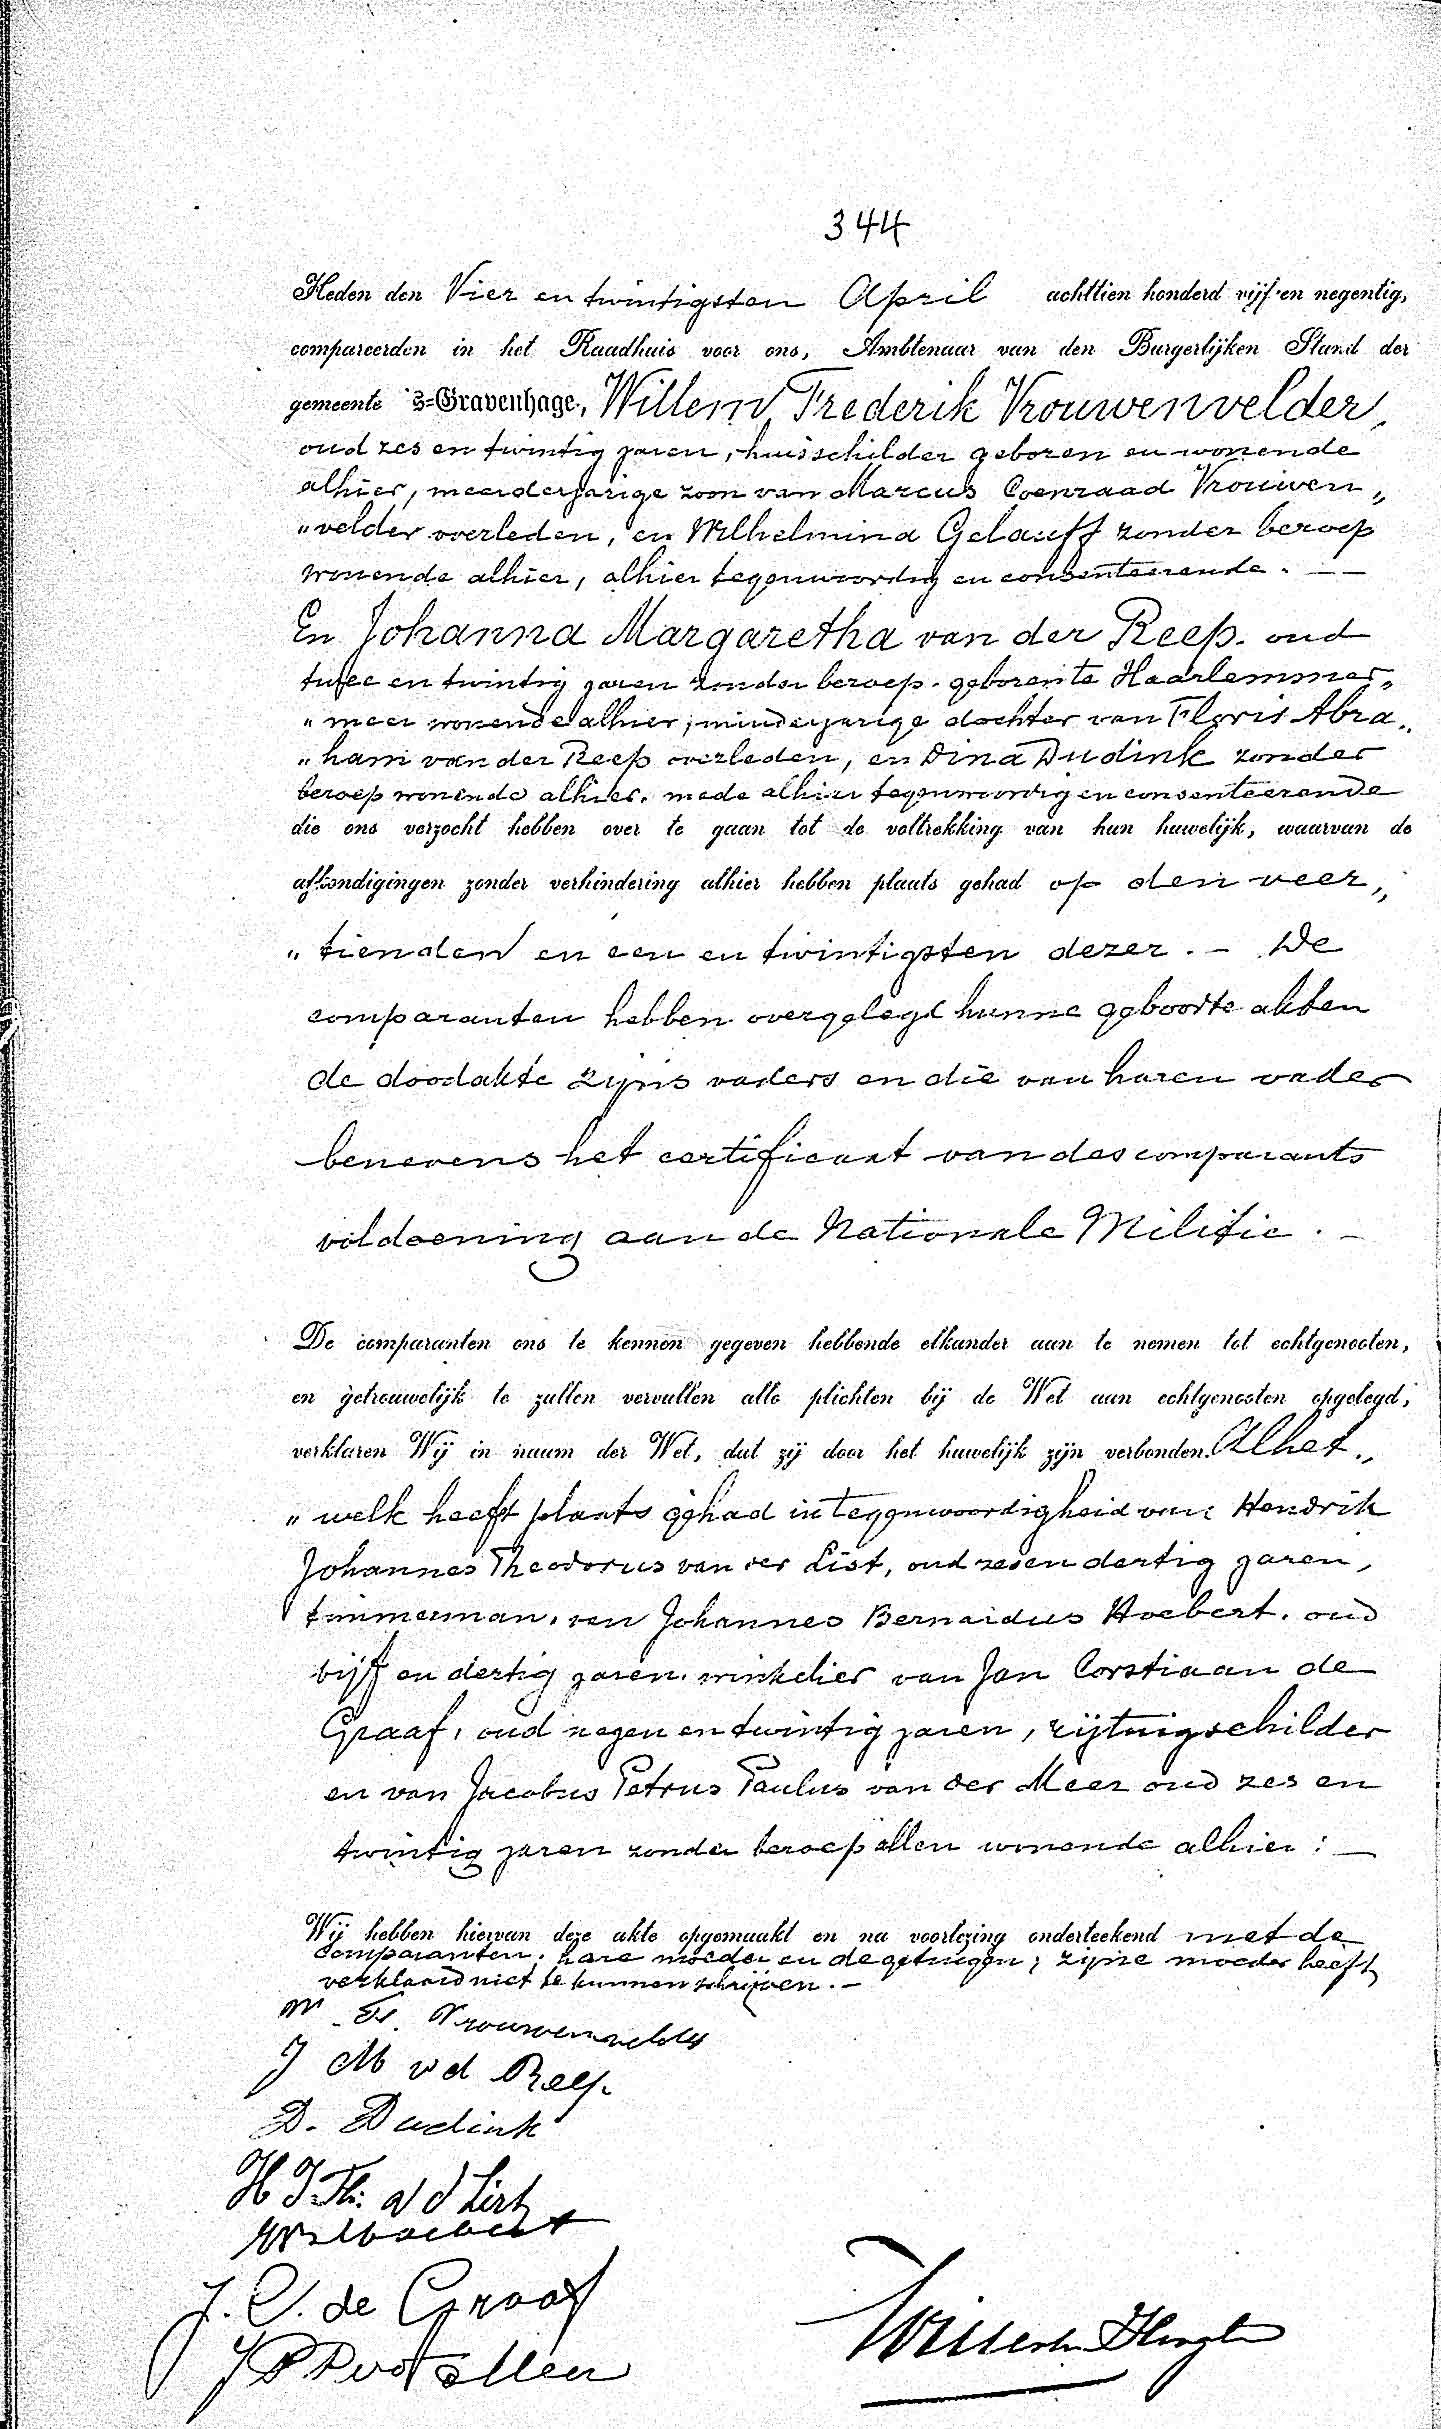 344
Heden den Vier en twintigsten April achttien honderd vijf en negentig,
compareerden in het Raadhuis voor ons, Ambtenaar van den Burgerlijken Stand der
gemeente 's=Gravenhage, Willem Frederik Vrouwenvelder,
oud zes en twintig jaren, huisschilder geboren en wonende
alhier, meerderjarige zoon van Marcus Coenraad Vrouwen„
„velder overleden, en Wilhelmina Gelauff zonder beroep
wonende alhier, alhier tegenwoordig en consenteerende. —
En Johanna Margaretha van der Reep. oud
twee en twintig jaren zonder beroep. geboren te Haarlemmer„
„meer wonende alhier, minderjarige dochter van Floris Abra„
„ham van der Reep overleden, en Dina Dudink zonder
beroep wonende alhier. mede alhier tegenwoordig en consenteerende
die ons verzocht hebben over te gaan tot de voltrekking van hun huwelijk, waarvan de
afkondigingen zonder verhindering alhier hebben plaats gehad op den veer„
„tienden en een en twintigsten dezer. — De
comparanten hebben overgelegd hunne geboorte akten
de doodakte zijns vaders en die van haren vader
benevens het certificaat van des comparants
voldoening aan de Nationale Militie. —
De comparanten ons te kennen gegeven hebbende elkander aan te nemen tot echtgenooten,
en getrouwelijk te zullen vervullen alle plichten bij de Wet aan echtgenooten opgelegd,
verklaren Wij in naam der Wet, dat zij door het huwelijk zijn verbonden. Alhet„
„welk heeft plaats gehad in tegenwoordigheid van Hendrik
Johannes Theodorus van der List, oud zes en dertig jaren,
timmerman, van Johannes Bernardus Hoebert. oud
vijf en dertig jaren. winkelier van Jan Corstiaan de
Graaf, oud negen en twintig jaren, rijtuigschilder
en van Jacobus Petrus Paulus van der Meer oud zes en
twintig jaren zonder beroep allen wonende alhier: —
Wij hebben hiervan deze akte opgemaakt en na voorlezing onderteekend met de
comparanten, hare moeder en de getuigen; zijne moeder heeft
verklaard niet te kunnen schrijven. —
W. Fr. Vrouwenvelder
J M v d Reep.
D. Dudink
H J Th: v d List
Hoebert
J. C. de Graaf
J P P v d Meer